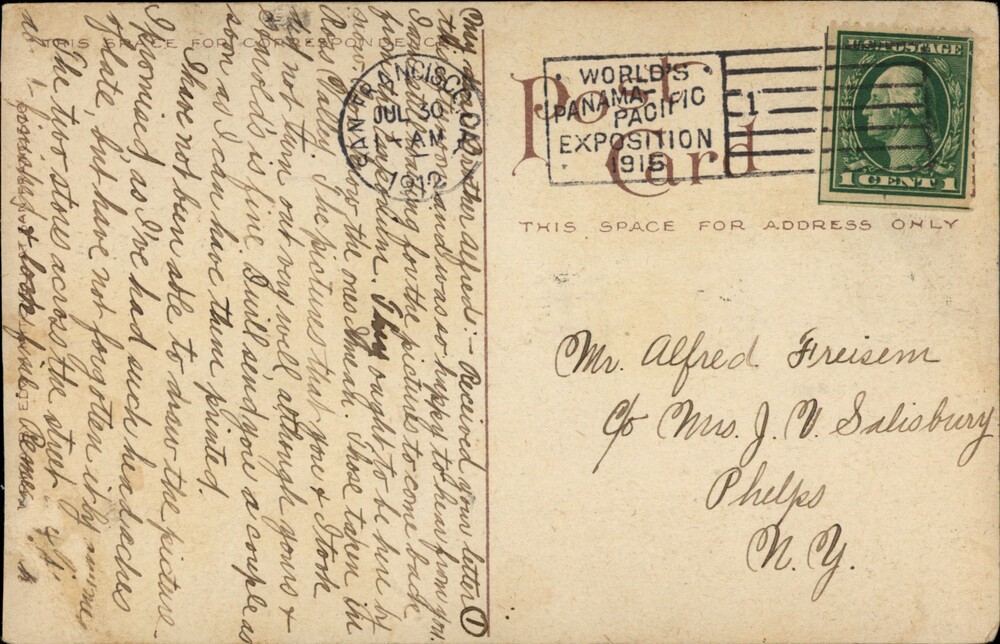 Post Card
THIS SPACE FOR CORRESPONDENCE
THIS SPACE FOR ADDRESS ONLY
SAN FRANCISCO, CAL.
JUL 30
1 - AM
1912
WORLD'S
PANAMA-PACIFIC
EXPOSITION
1915
1
U.S. POSTAGE
1 CENT 1
Mr. Alfred Freisem
c/o Mrs. J. V. Salisbury
Phelps
N. Y.
1
My dear Brother Alfred:- Received your letter
this and was so happy to hear from you.
I am still waiting for the pictures to come back
from They ought to be here by
now. You know the ones I mean. Those taken in the
Ross Valley. The pictures that you & I took
did not turn out very well although yours &
Arnold's is fine. I will send you a couple as
soon as I can have them printed.
I have not been able to draw the picture
I promised as I've had such headaches
of late, but have not forgotten it by
The two stores across the street
& look fine.